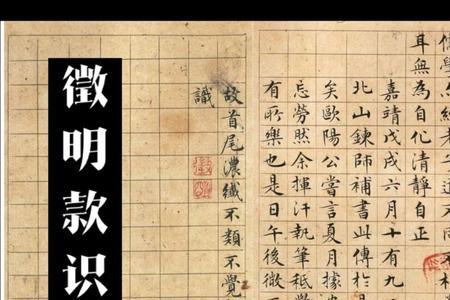 耳無為自化清靜自正
嘉靖戊戌六月十有九
北山鍊師補書此傳於
矣歐陽公嘗言夏月據
忘勞然余揮汗執筆秪
有所樂也是日午後微
故首尾濃纖不類不覺
識
徵明款识